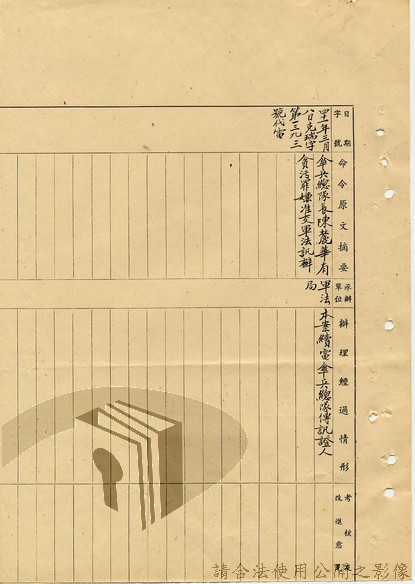 日期
字號
命令原文摘要
承辦
單位
辦理經過情形
考核
改進意見
四一年三月
八日克瑞字
第一三九三
號代電
傘兵總隊長陳麓華有
貪污罪嫌准交軍法訊辦
軍法
局
本案續電傘兵總隊傳訊證人
請合法使用公開之影像